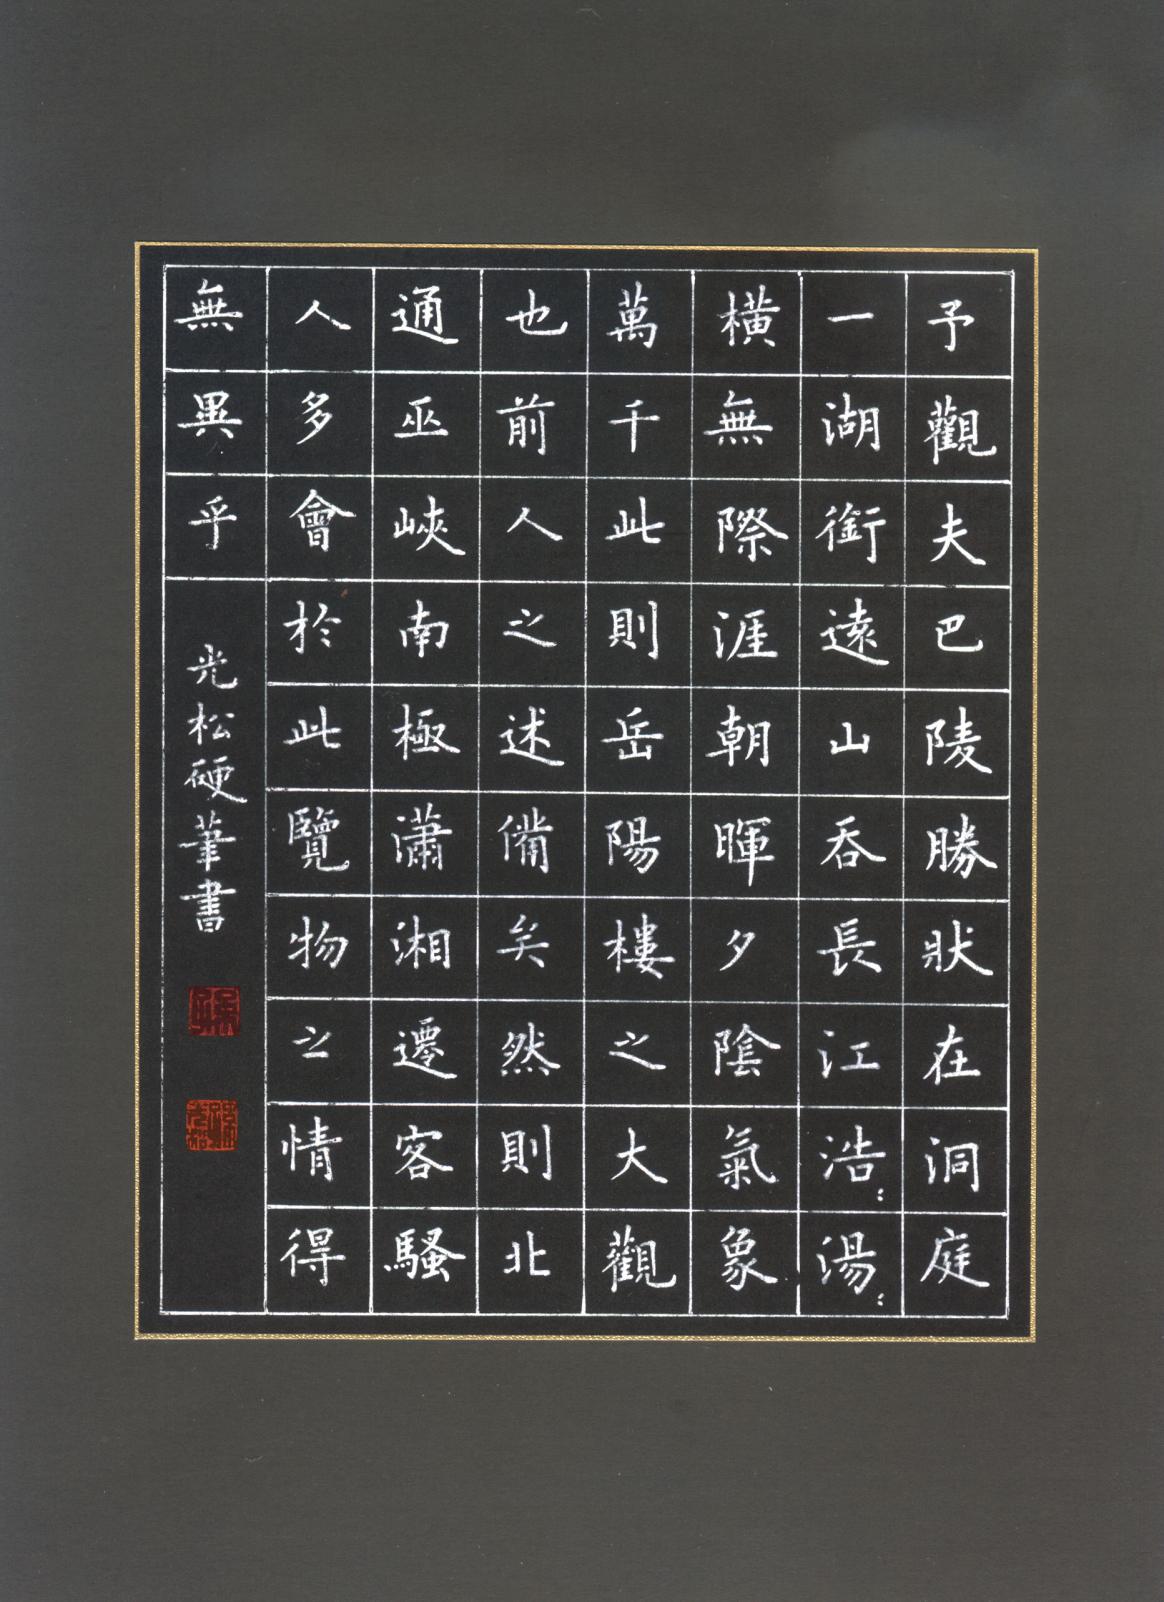 予觀夫巴陵勝狀在洞庭
一湖銜遠山吞長江浩：湯：
橫無際涯朝暉夕陰氣象
萬千此則岳陽樓之大觀
也前人之述備矣然則北
通巫峽南極瀟湘遷客騷
人多會於此覽物之情得
無異乎
光松硬筆書